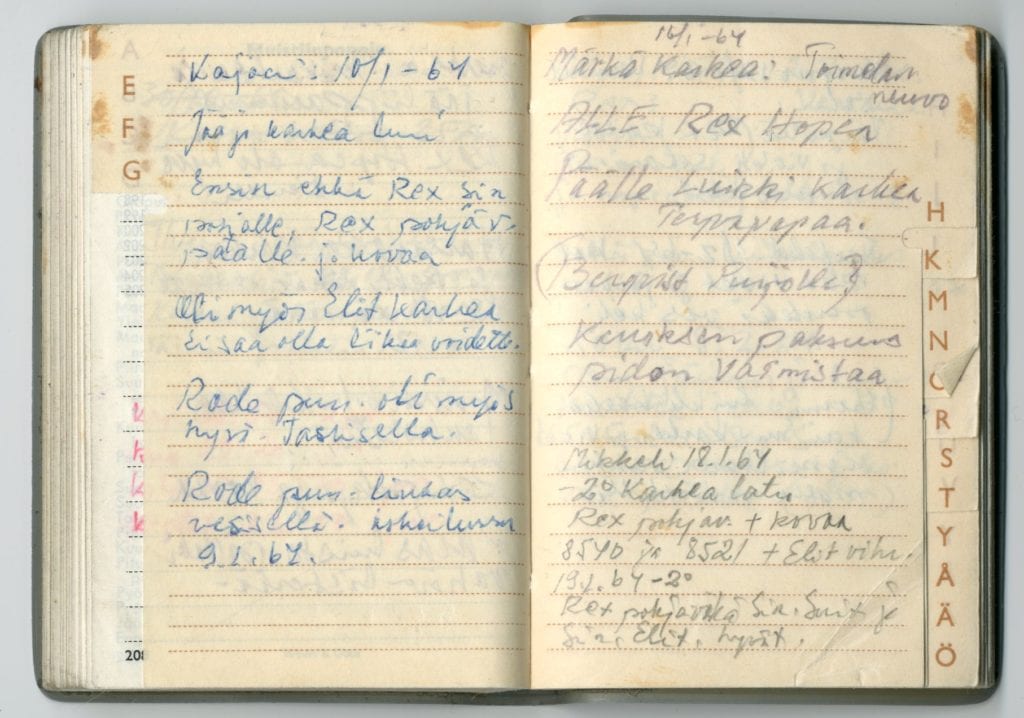 A
E
F
G
Kajaani: 10/1 -64
Jää ja karkea lumi
Ensin ehkä Rex sin
pohjalle, Rex pohjav.
päälle. ja kovaa
Oli myös Elit karkea
ei saa olla liikaa voidett.
Rode pun. oli myös
hyvä. Tasaisella.
Rode pun. liukas
vesisellä.
9.1.64.
208
16/1 -64
Märkä Karkea: Toimelan
neuvo
ALLE Rex Hopea
Päälle Luikki Karkea
Tervavapaa.
Kerroksen paksuus
pidon Varmistaa
Mikkeli 18.1.64
-2° Karkea latu
Rex pohjav. + kovaa
8540 ja 8521 + Elit vihr.
19.1.64 -2°
Rex pohjavoide Sin. Swix &
Sin. Elit. hyvät.
H
K
M
N
O
R
S
T
Y
Å
Ä
Ö